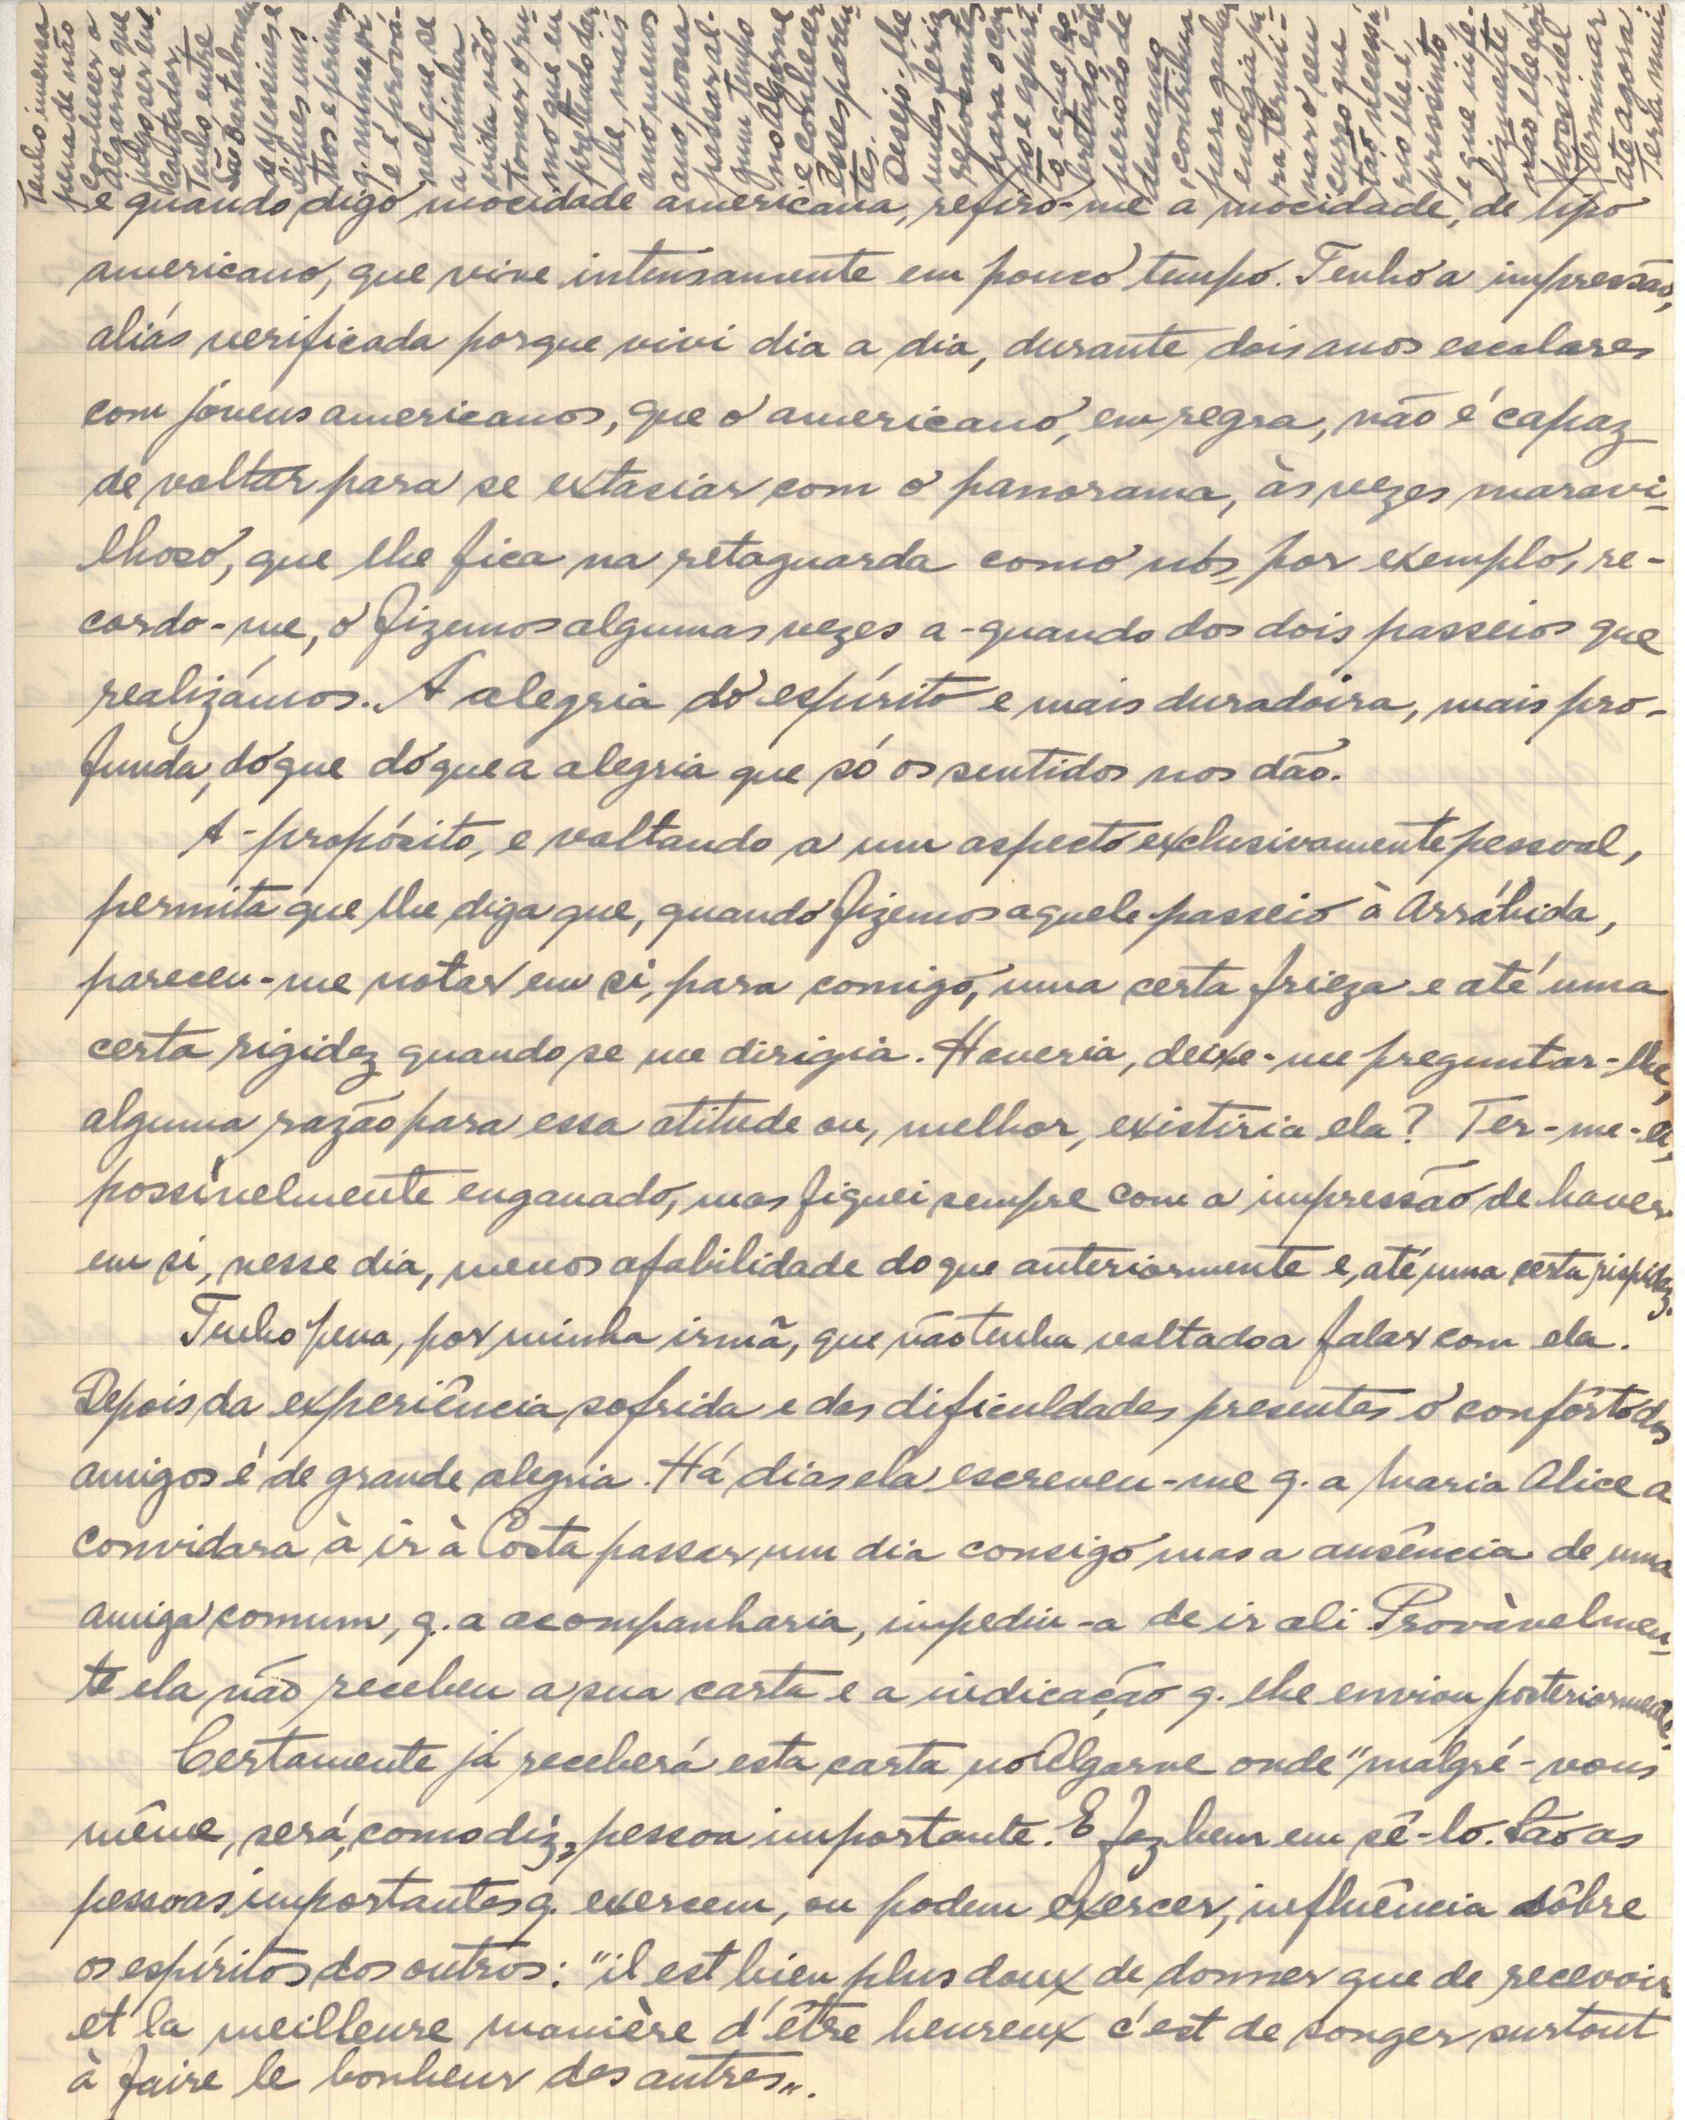 e quando digo mocidade americana, refiro-me à mocidade, de tipo
americano, que vive intensamente em pouco tempo. Tenho a impressão,
aliás verificada porque vivi dia a dia, durante dois anos escolares
com jóvens americanos, que o americano, em regra, não é capaz
de voltar para se extasiar com o panorama, às vezes maravi-
lhoso, que lhe fica na retaguarda como nós, por exemplo, re-
cordo-me, o fizemos algumas vezes a-quando dos dois passeios que
realizámos. A alegria do espírito e mais duradoira, mais pro-
funda, do que do que a alegria que só os sentidos nos dão.
A-propósito, e voltando a um aspecto exclusivamente pessoal,
permita que lhe diga que, quando fizemos aquele passeio à Arrábida,
pareceu-me notar em si, para comigo, uma certa frieza e até uma
certa rigidez quando se me dirigia. Haveria, deixe-me preguntar-lhe,
alguma razão para essa atitude ou, melhor, existiria ela? Ter-me-ei,
possívelmente enganado, mas fiquei sempre com a impressão de haver
em si, nesse dia, menos afabilidade do que anteriormente e, até, uma certa rispidez.
Tenho pena, por minha irmã, que não tenha voltado a falar com ela.
Depois da experiência sofrida e das dificuldades presentes o confôrto dos
amigos é de grande alegria. Há dias ela escreveu-me q. a Maria Alice a
convidara à ir à Costa passar um dia consigo mas a ausência de uma
amiga comum, q. a acompanharia, impediu-a de ir ali. Provàvelmen-
te ela não recebeu a sua carta e a indicação q. lhe enviou posteriormente.
Certamente já receberá esta carta no Algarve onde "malgré-vous
même, será, como diz, pessoa importante. E faz bem em sê-lo. São as
pessoas importantes q. exercem, ou podem exercer, influência sôbre
os espíritos dos outros: "il est bien plus doux de donner que de recevoir
et la meilleure manière d'être heureux c'est de songer surtout
à faire le bonheur des autres".
Tenho imensa
pena de não
conhecer o
Algarve que
julgo ser en-
cantador.
Tenho, entre
São Bartolomeu
de Messines e
Silves uns
tios e primos
q. nunca vi
e é prová-
vel que se
a minha
vida não
tomar o ru-
mo que eu
pretendo dar-
lhe, mais
ano menos
ano, possa
passar al-
gum tempo
no Algarve
e conhecer
esses paren-
tes. Desejo-lhe
umas férias
repousantes
para o cor-
po e espíri-
to e que, so-
bretudo, êste
período de
descanso
contribua
para ganhar
energia pa-
ra termi-
nar o seu
curso que
tão necessá-
rio lhe é,
pressinto
e que infe-
lizmente
não lhe foi
possível
terminar
até agora.
Terla mui-